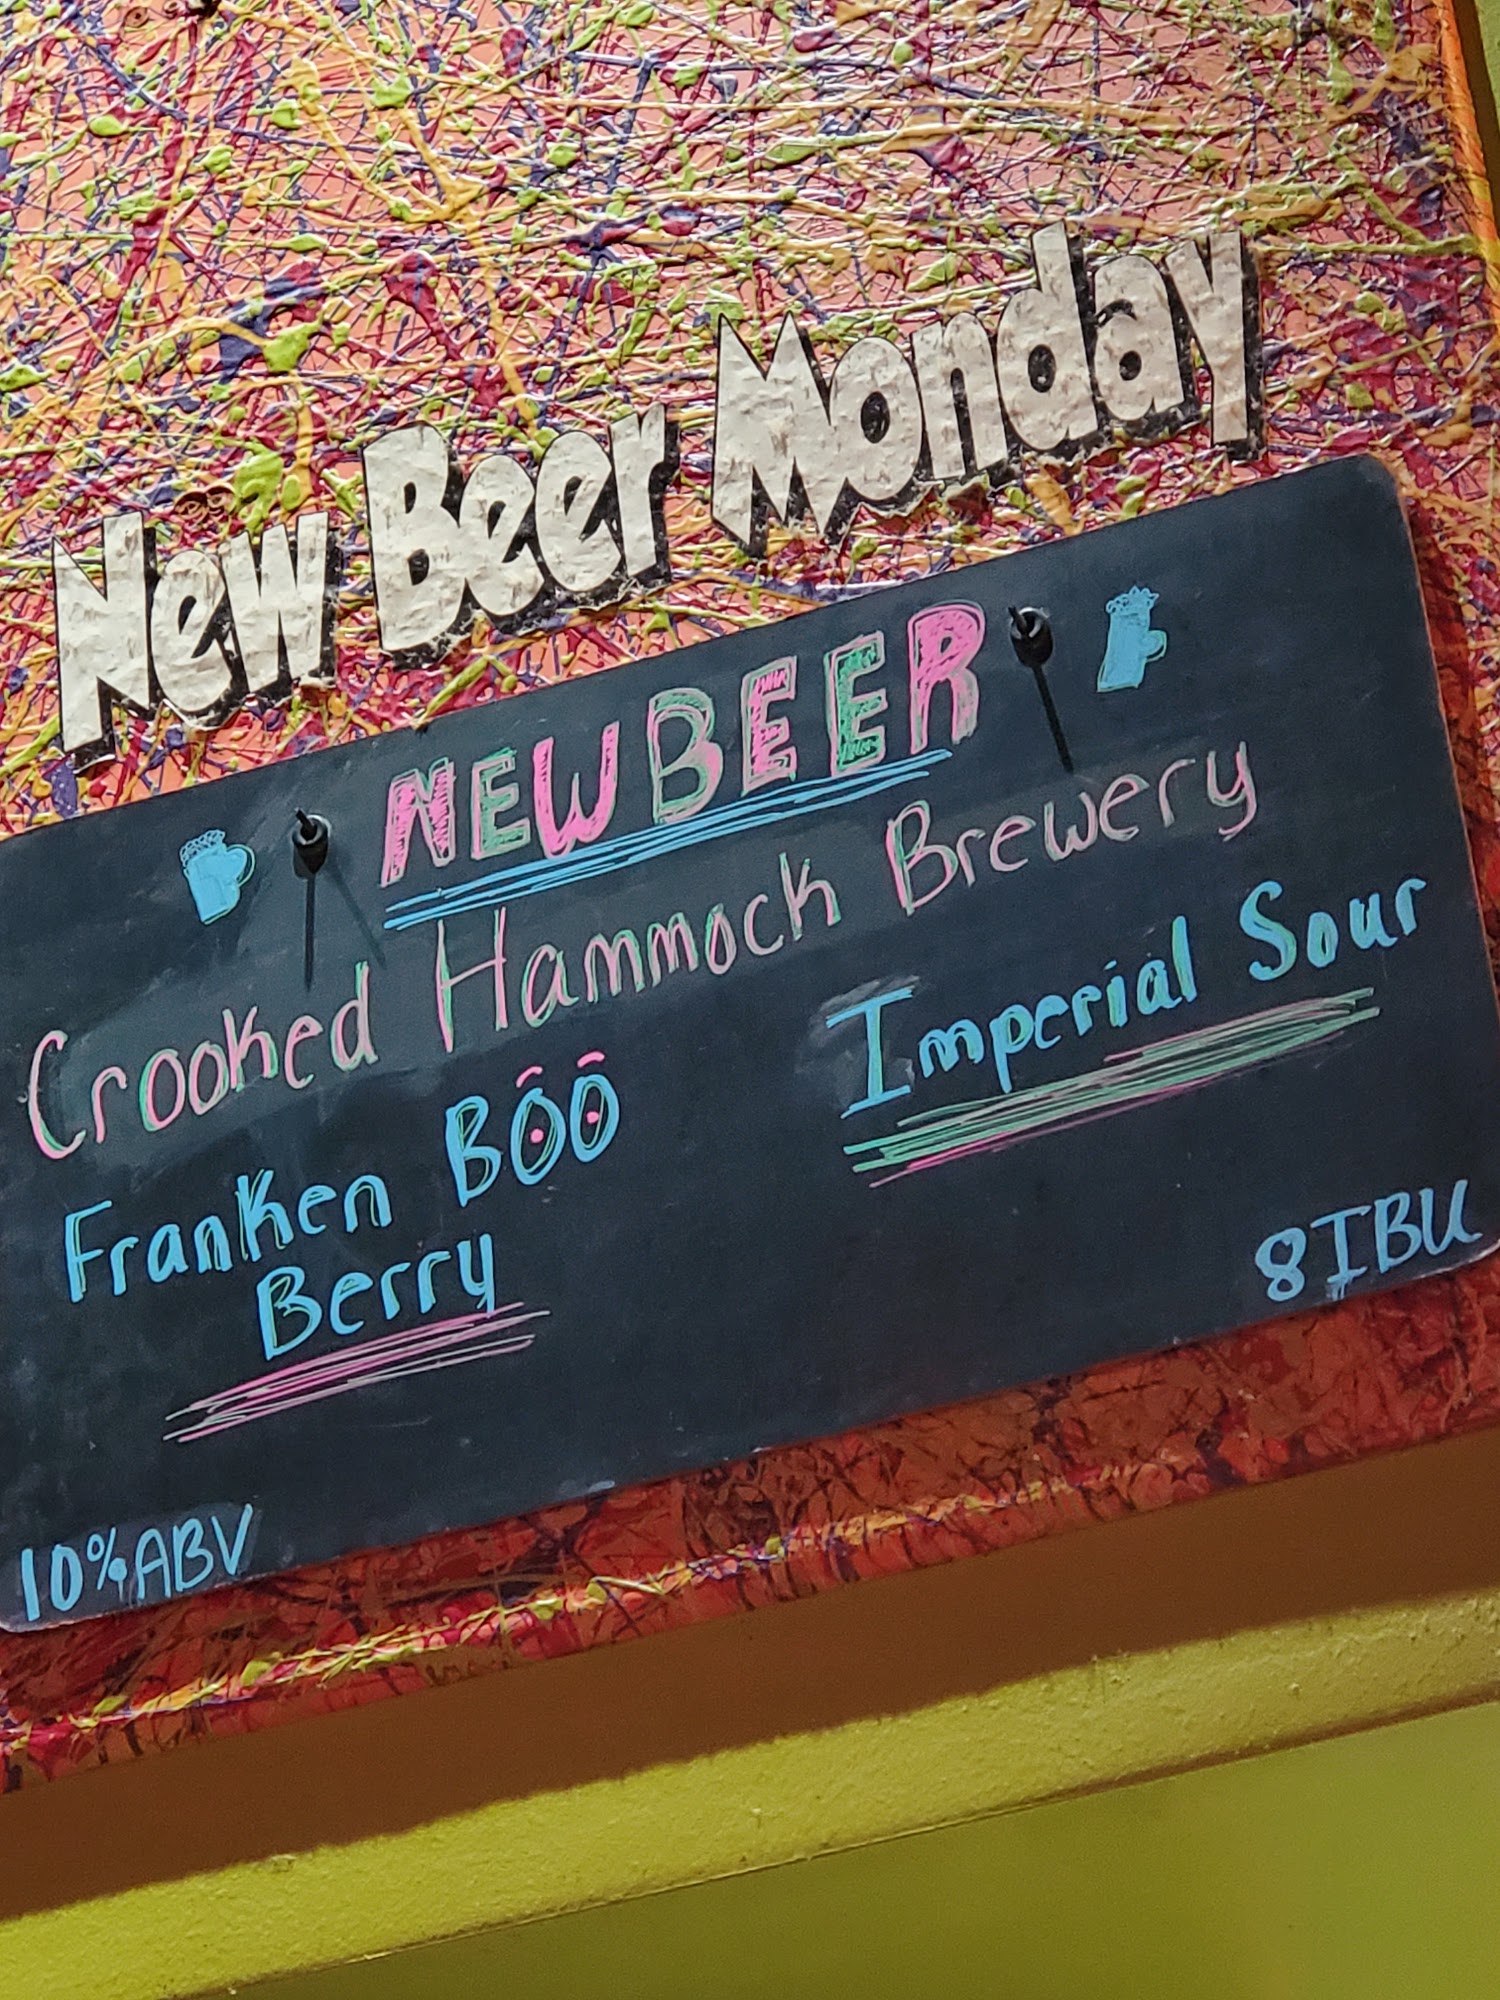 New Beer Monday
NEW BEER
Crooked Hammock Brewery
Franken BOO
Berry
Imperial Sour
10% ABV
8 IBU